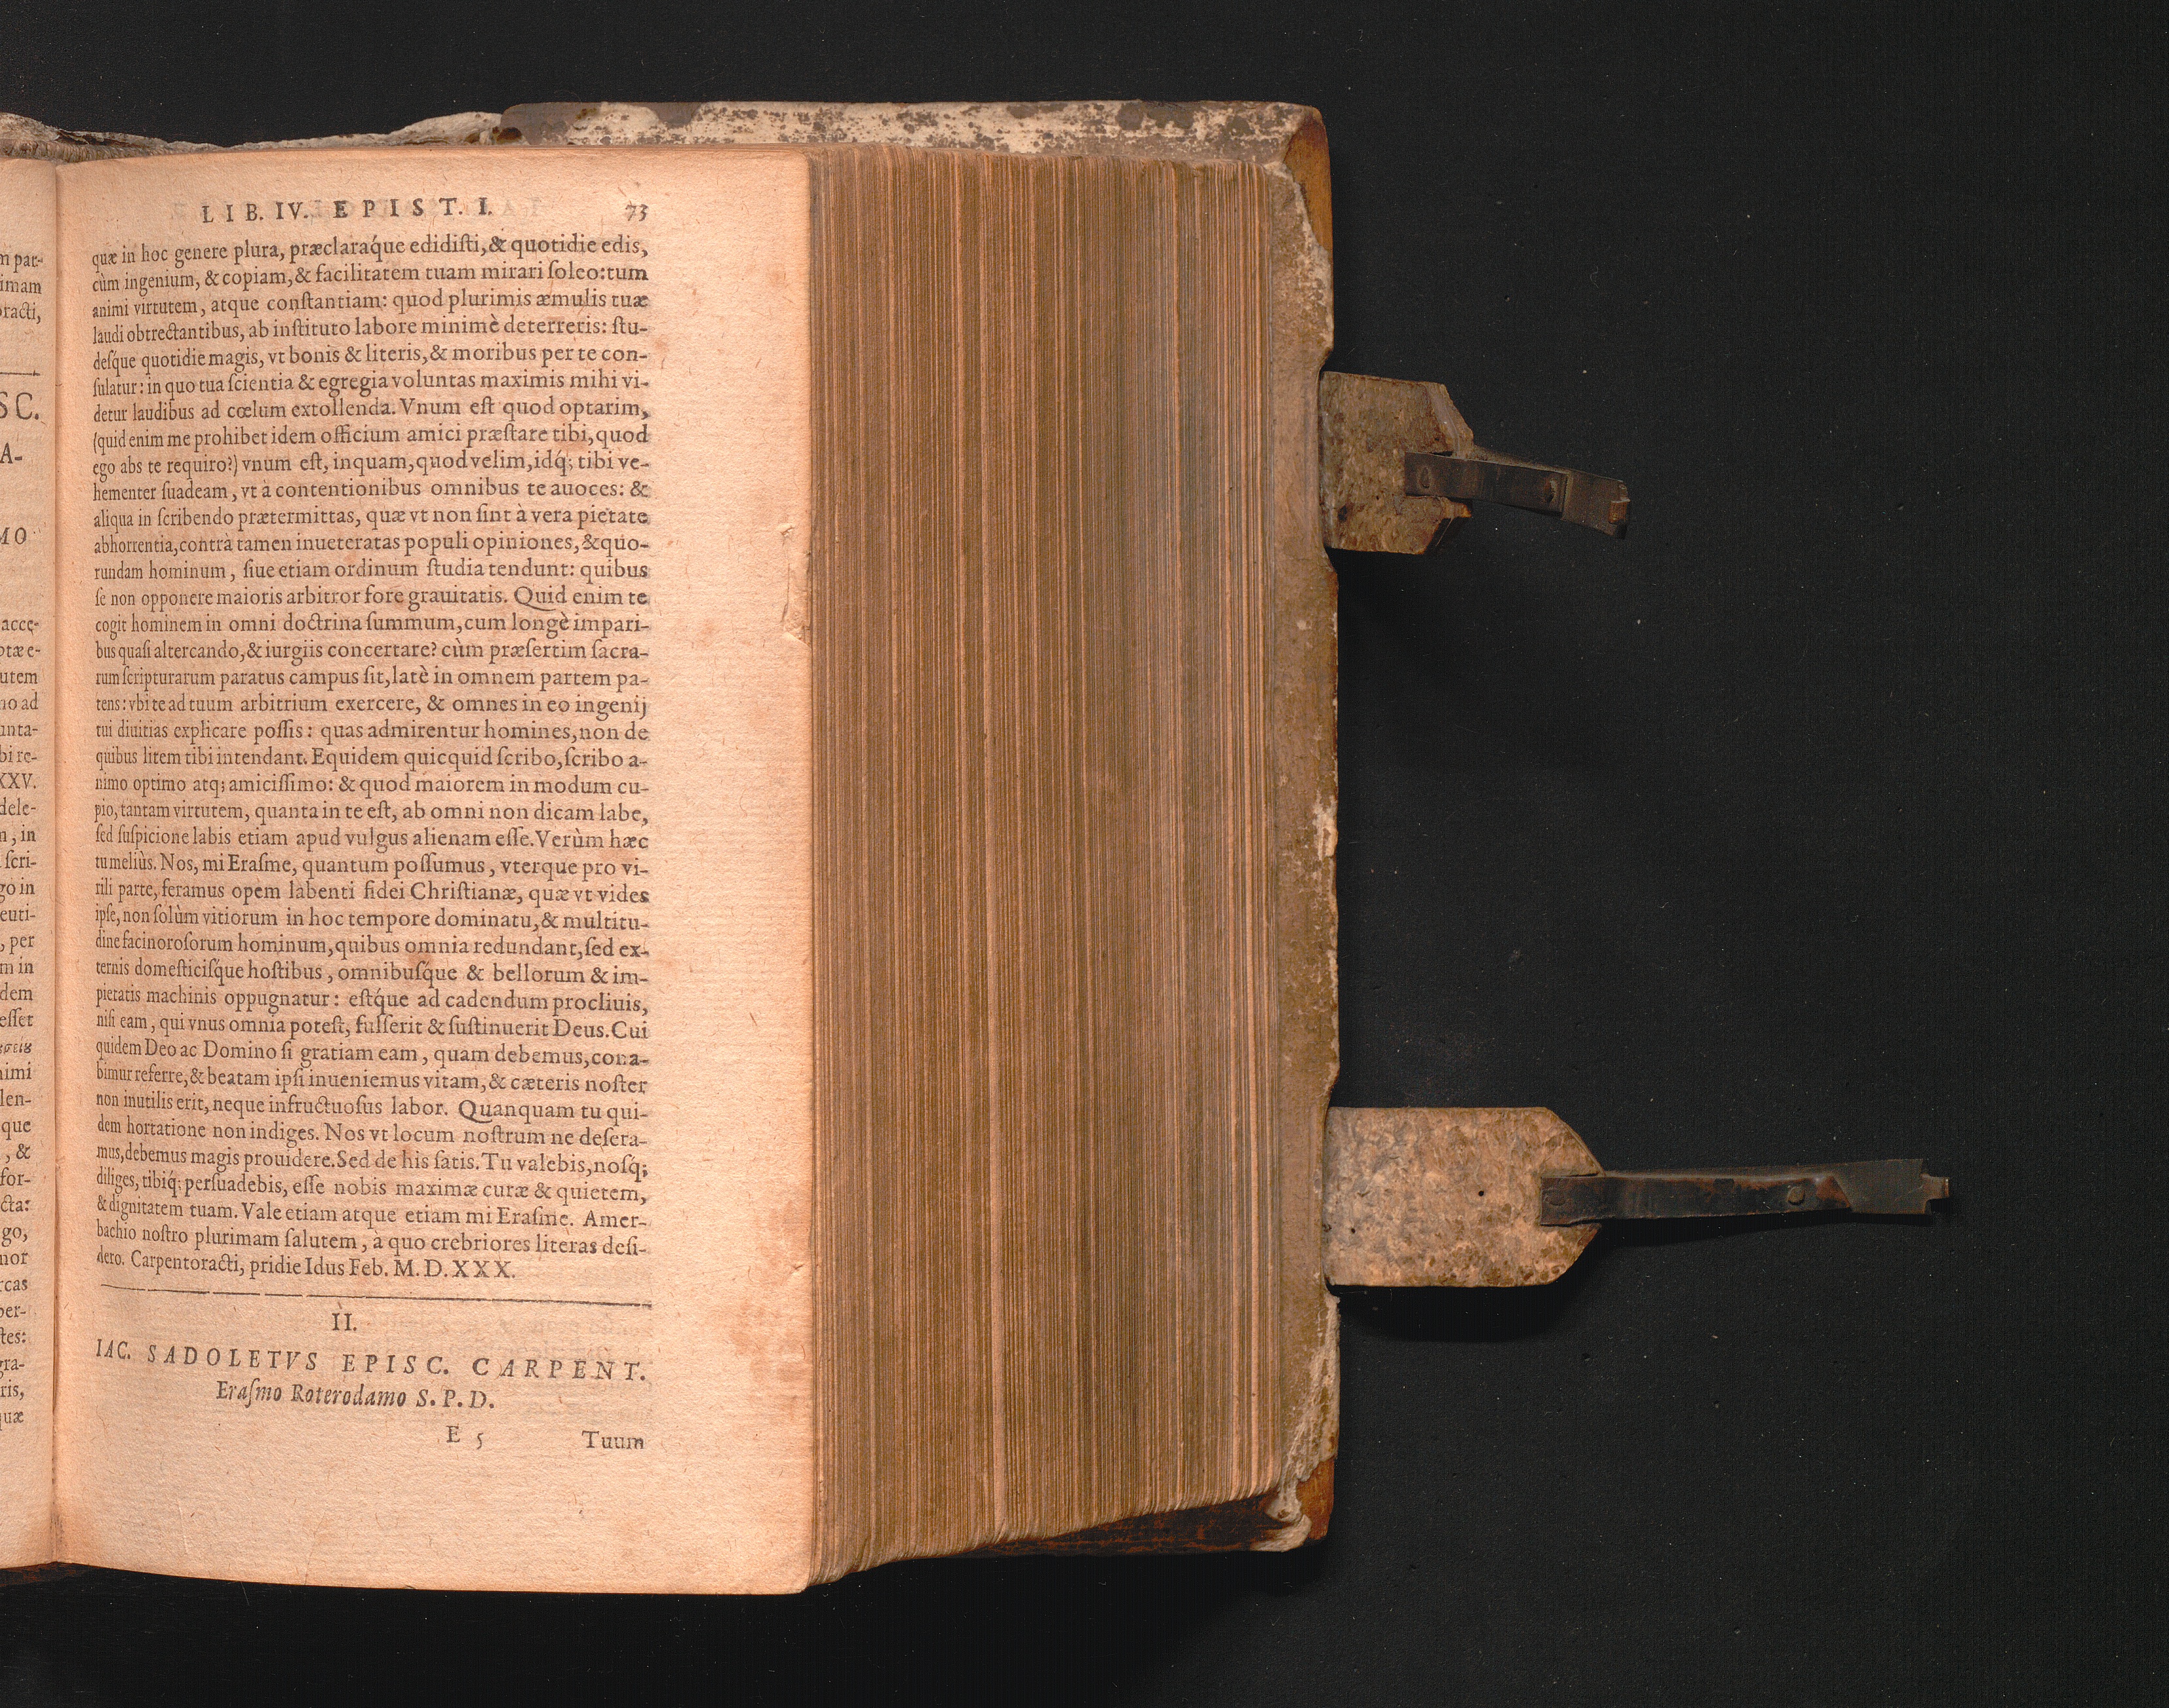 LIB. IV. EPIST. I. 73
quæ in hoc genere plura, præclaraq́ue edidiſti, & quotidie edis,
cùm ingenium, & copiam, & facilitatem tuam mirari ſoleo: tum
animi virtutem, atque conſtantiam: quod plurimis æmulis tuæ
laudi obtrectantibus, ab inſtituto labore minimè deterreris: ſtu-
deſque quotidie magis, vt bonis & literis, & moribus per te con-
ſulatur: in quo tua ſcientia & egregia voluntas maximis mihi vi-
detur laudibus ad cœlum extollenda. Vnum eſt quod optarim,
(quid enim me prohibet idem officium amici præſtare tibi, quod
ego abs te requiro?) vnum eſt, inquam, quod velim, idq́; tibi ve-
hementer ſuadeam, vt à contentionibus omnibus te auoces: &
aliqua in ſcribendo prætermittas, quæ vt non ſint à vera pietate
abhorrentia, contrà tamen inueteratas populi opiniones, & quo-
rundam hominum, ſiue etiam ordinum ſtudia tendunt: quibus
ſe non opponere maioris arbitror fore grauitatis. Quid enim te
cogit hominem in omni doctrina ſummum, cum longè impari-
bus quaſi altercando, & iurgiis concertare? cùm præſertim ſacra-
rum ſcripturarum paratus campus ſit, latè in omnem partem pa-
tens: vbi te ad tuum arbitrium exercere, & omnes in eo ingenij
tui diuitias explicare poſſis: quas admirentur homines, non de
quibus litem tibi intendant. Equidem quicquid ſcribo, ſcribo a-
nimo optimo atq; amiciſſimo: & quod maiorem in modum cu-
pio, tantam virtutem, quanta in te eſt, ab omni non dicam labe,
ſed ſuſpicione labis etiam apud vulgus alienam eſſe. Verùm hæc
tu meliùs. Nos, mi Eraſme, quantum poſſumus, vterque pro vi-
rili parte, feramus opem labenti fidei Chriſtianæ, quæ vt vides
ipſe, non ſolùm vitiorum in hoc tempore dominatu, & multitu-
dine facinoroſorum hominum, quibus omnia redundant, ſed ex-
ternis domeſticiſque hoſtibus, omnibuſque & bellorum & im-
pietatis machinis oppugnatur: eſtq́ue ad cadendum procliuis,
niſi eam, qui vnus omnia poteſt, fulſerit & ſuſtinuerit Deus. Cui
quidem Deo ac Domino ſi gratiam eam, quam debemus, cona-
bimur referre, & beatam ipſi inueniemus vitam, & cæteris noſter
non inutilis erit, neque infructuoſus labor. Quanquam tu qui-
dem hortatione non indiges. Nos vt locum noſtrum ne deſera-
mus, debemus magis prouidere. Sed de his ſatis. Tu valebis, noſq́;
diliges, tibiq́; perſuadebis, eſſe nobis maximæ curæ & quietem,
& dignitatem tuam. Vale etiam atque etiam mi Eraſme. Amer-
bachio noſtro plurimam ſalutem, a quo crebriores literas deſi-
dero. Carpentoracti, pridie Idus Feb. M. D. XXX.
II.
IAC. SADOLETVS EPISC. CARPENT.
Eraſmo Roterodamo S. P. D.
E 5 Tuum